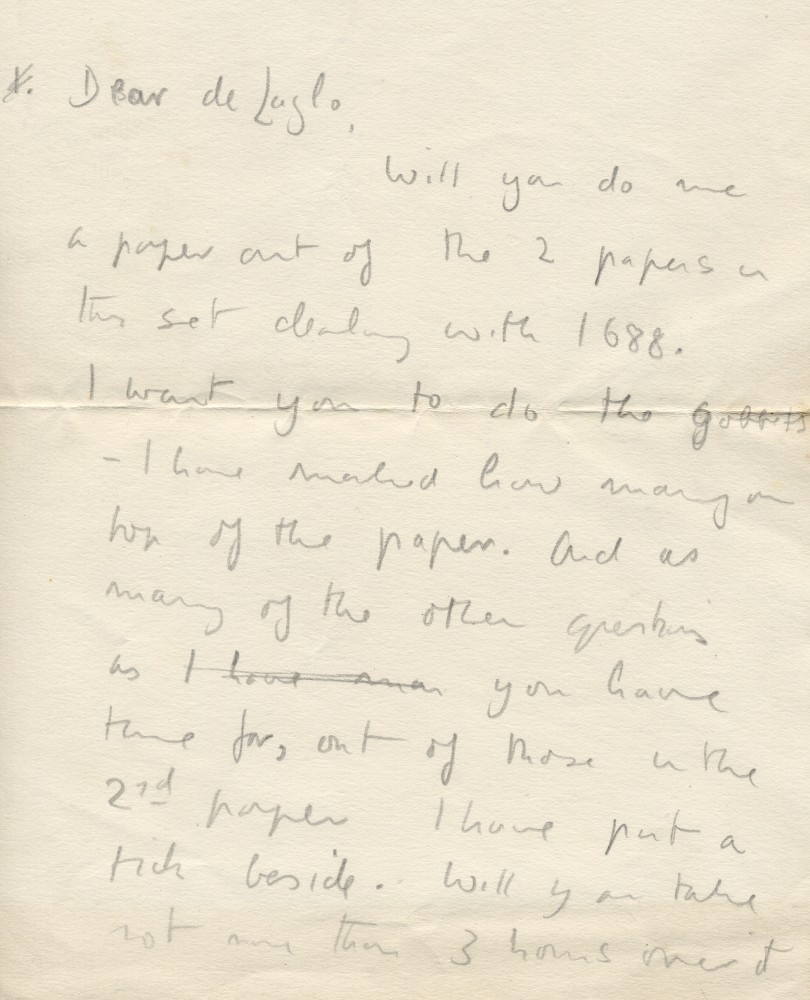 Dear de Laglo,
Will you do me
a paper out of the 2 papers in
this set dealing with 1688.
I want you to do the gobbets
- I have marked how many on
top of the paper. And as
many of the other questions
as I have man you have
time for, out of those in the
2nd paper I have put a
tick beside. Will you take
not more than 3 hours over it